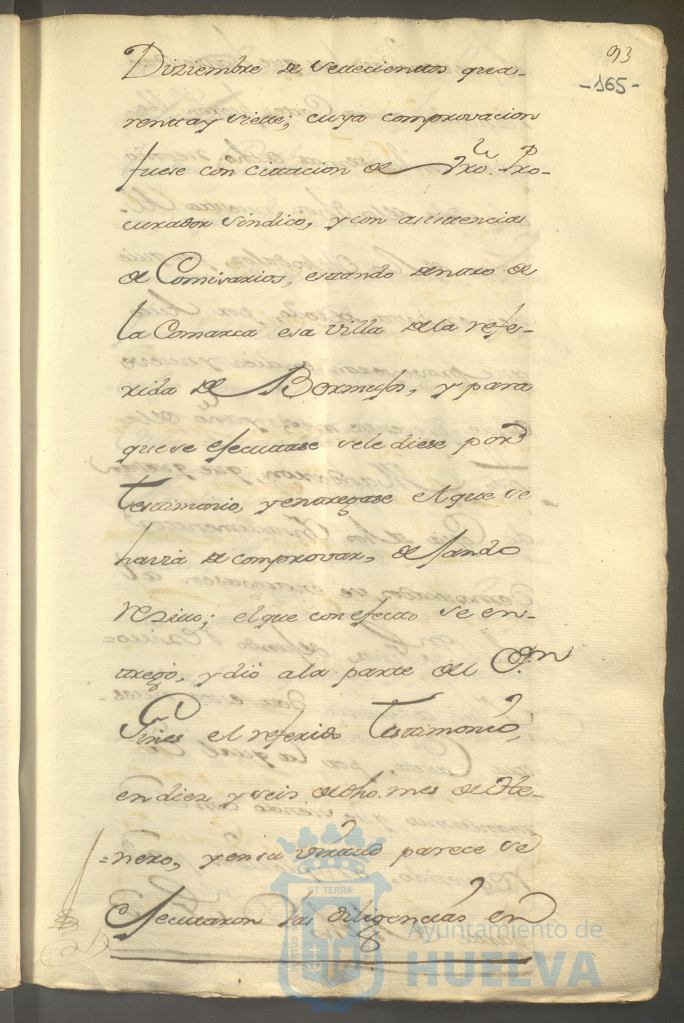 93
-165-
Diziembre de setecientos qua-
renta y siete; cuya comprovacion
fuese con citacion de Nro. Pro-
curador Sindico, y con asistencia
de Comisarios, estando dentro de
la Comarca esa villa de la refe-
rida de Bormujos, y para
que se ejecutase se le diese por
Testimonio, y entregase el que se
havia de comprovar, dejando
rezivo; el que con efecto se en-
trego, y dió a la parte del
Gines el referido Testimonio,
en diez y seis de dho. mes de He-
=nero, y en su virtud parece se
ejecutaron las diligencias en
ET TERRÆ
Ayuntamiento de
HUELVA